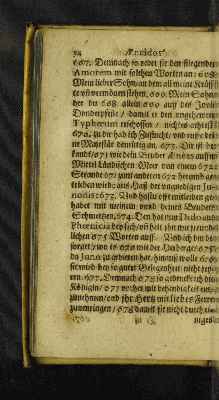 54 Æneidos
667. Demnach so redet sie den fliegenden
Amorem mit solchen Worten an: 668.
Mein lieber Sohn/ an dem all meine Kräff-
te und vermögen stehen, 669. Mein Sohn
der du 668 allein 669 auff des Jovis
Donderpfeile / damit er den ungehewren
Typhœum erschossen / nichtes achtest
670. zu dir hab ich Zuflucht/ und ruffe dei-
ne Majestät demütig an. 667. Dir ist be-
kandt/ 671 wie dein Bruder Æneas auff dem
Mittel Ländischen Meer von einem 672
Strande 671 zum anderen 672 herumb ge-
trieben wird: aus Haß der ungnedigen Ju-
nonis: 673. Und hast du oft mitleiden ge-
habet mit meinen und deines Bruders
Schmertzen. 674. Den hat nun Dido aus
Phœnicia bey sich/ und helt ihn mit freund-
lichen 675 Worten auff. Und ich bin be-
sorget/ wo es 676 mit der Herberge/ 675
da Juno zu gebieten hat, hinaus wolle 676
sie wird bey so guter Gelegenheit nicht feyr-
en. 677. Demnach 678 so gedencke ich die
Königin/ 677 vorher mit behendigkeit ein-
zunehmen/ und ihr Hertz mit liebes Fewer